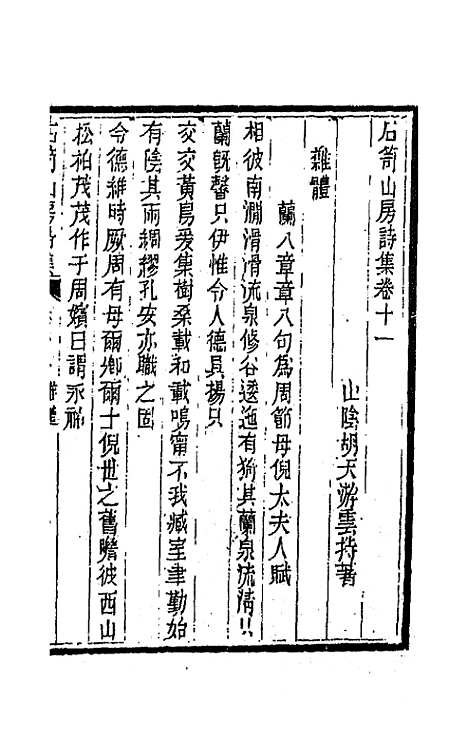 石笥山房詩集卷十一
山陰胡天游雲持著
雜體
蘭八章章八句為周節母倪太夫人賦
相彼南澗滑滑流泉修谷逶迤有猗其蘭泉流淸只
蘭旣馨只伊惟令人德具揚只
交交黃鳥爰集樹桑載和載鳴甯不我臧室聿勤始
有陰其雨綢繆孔安亦職之固
令德維時厥周有母爾鄉爾士倪世之舊瞻彼西山
松柏茂茂作于周嬪曰謂永福
石笥山房詩集 雜體